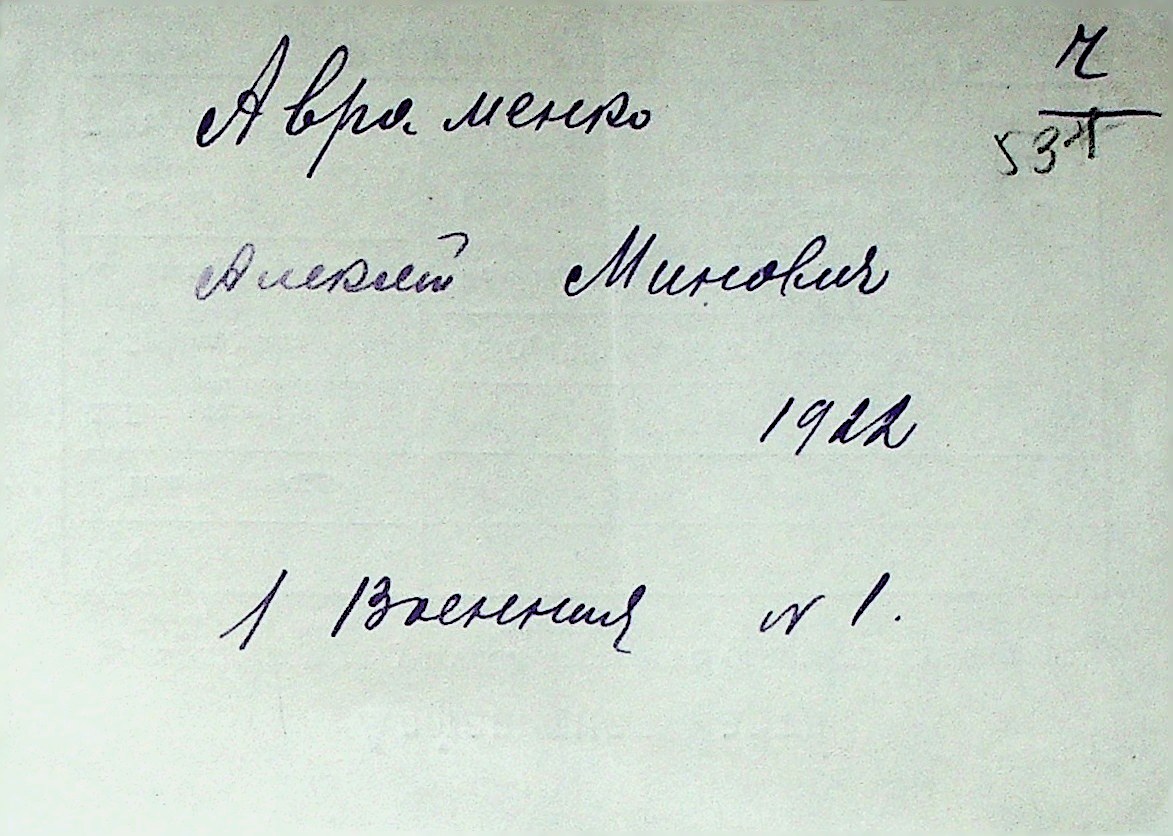 Авраменко
ч
53
Алексей Минович
1922
1 Военная N 1.